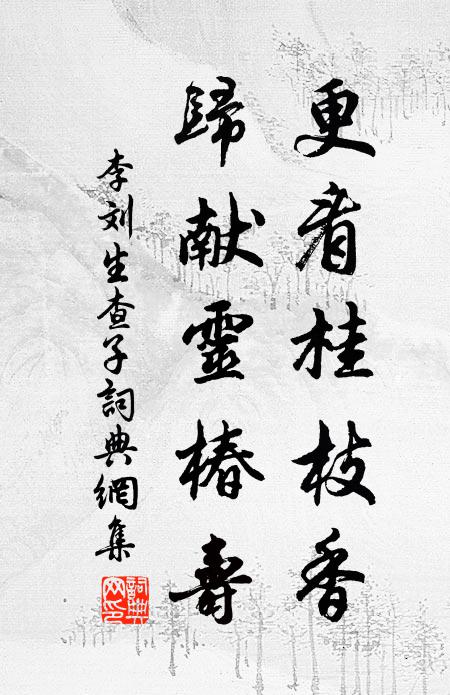 更看桂枝香
歸献靈椿壽
李刘生查子詞典網集
詞典网印